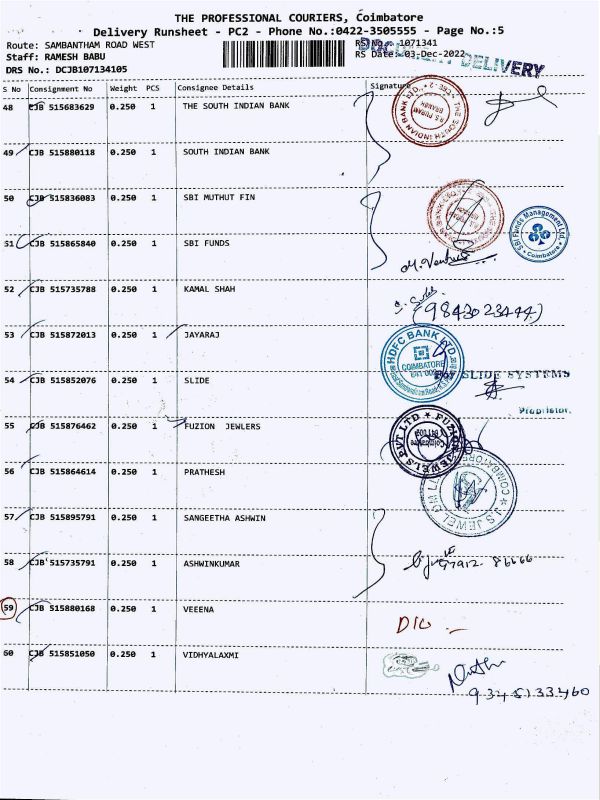 THE PROFESSIONAL COURIERS, Coimbatore
Delivery Runsheet - PC2 - Phone No.:0422-3505555 - Page No.:5
Route: SAMBANTHAM ROAD WEST
RS No.: 1071341
Staff: RAMESH BABU
RS Date: 03-Dec-2022
DRS No.: DCJB107134105
DELIVERY
S No Consignment No Weight PCS Consignee Details Signature
48 CJB 515683629 0.250 1 THE SOUTH INDIAN BANK
49 CJB 515880118 0.250 1 SOUTH INDIAN BANK
50 CJB 515836083 0.250 1 SBI MUTHUT FIN
SBI Funds Management Ltd. Coimbatore
51 CJB 515865840 0.250 1 SBI FUNDS
52 CJB 515735788 0.250 1 KAMAL SHAH
(9843023444)
53 CJB 515872013 0.250 1 JAYARAJ
HDFC BANK LTD.
COIMBATORE
54 CJB 515852076 0.250 1 SLIDE
For SLIDE SYSTEMS
Proprietor.
55 CJB 515876462 0.250 1 FUZION JEWLERS
FUZION JEWELS PVT LTD
56 CJB 515864614 0.250 1 PRATHESH
COIMBATORE
57 CJB 515895791 0.250 1 SANGEETHA ASHWIN
58 CJB 515735791 0.250 1 ASHWINKUMAR
59 CJB 515880168 0.250 1 VEEENA
60 CJB 515851050 0.250 1 VIDHYALAXMI
9345133460